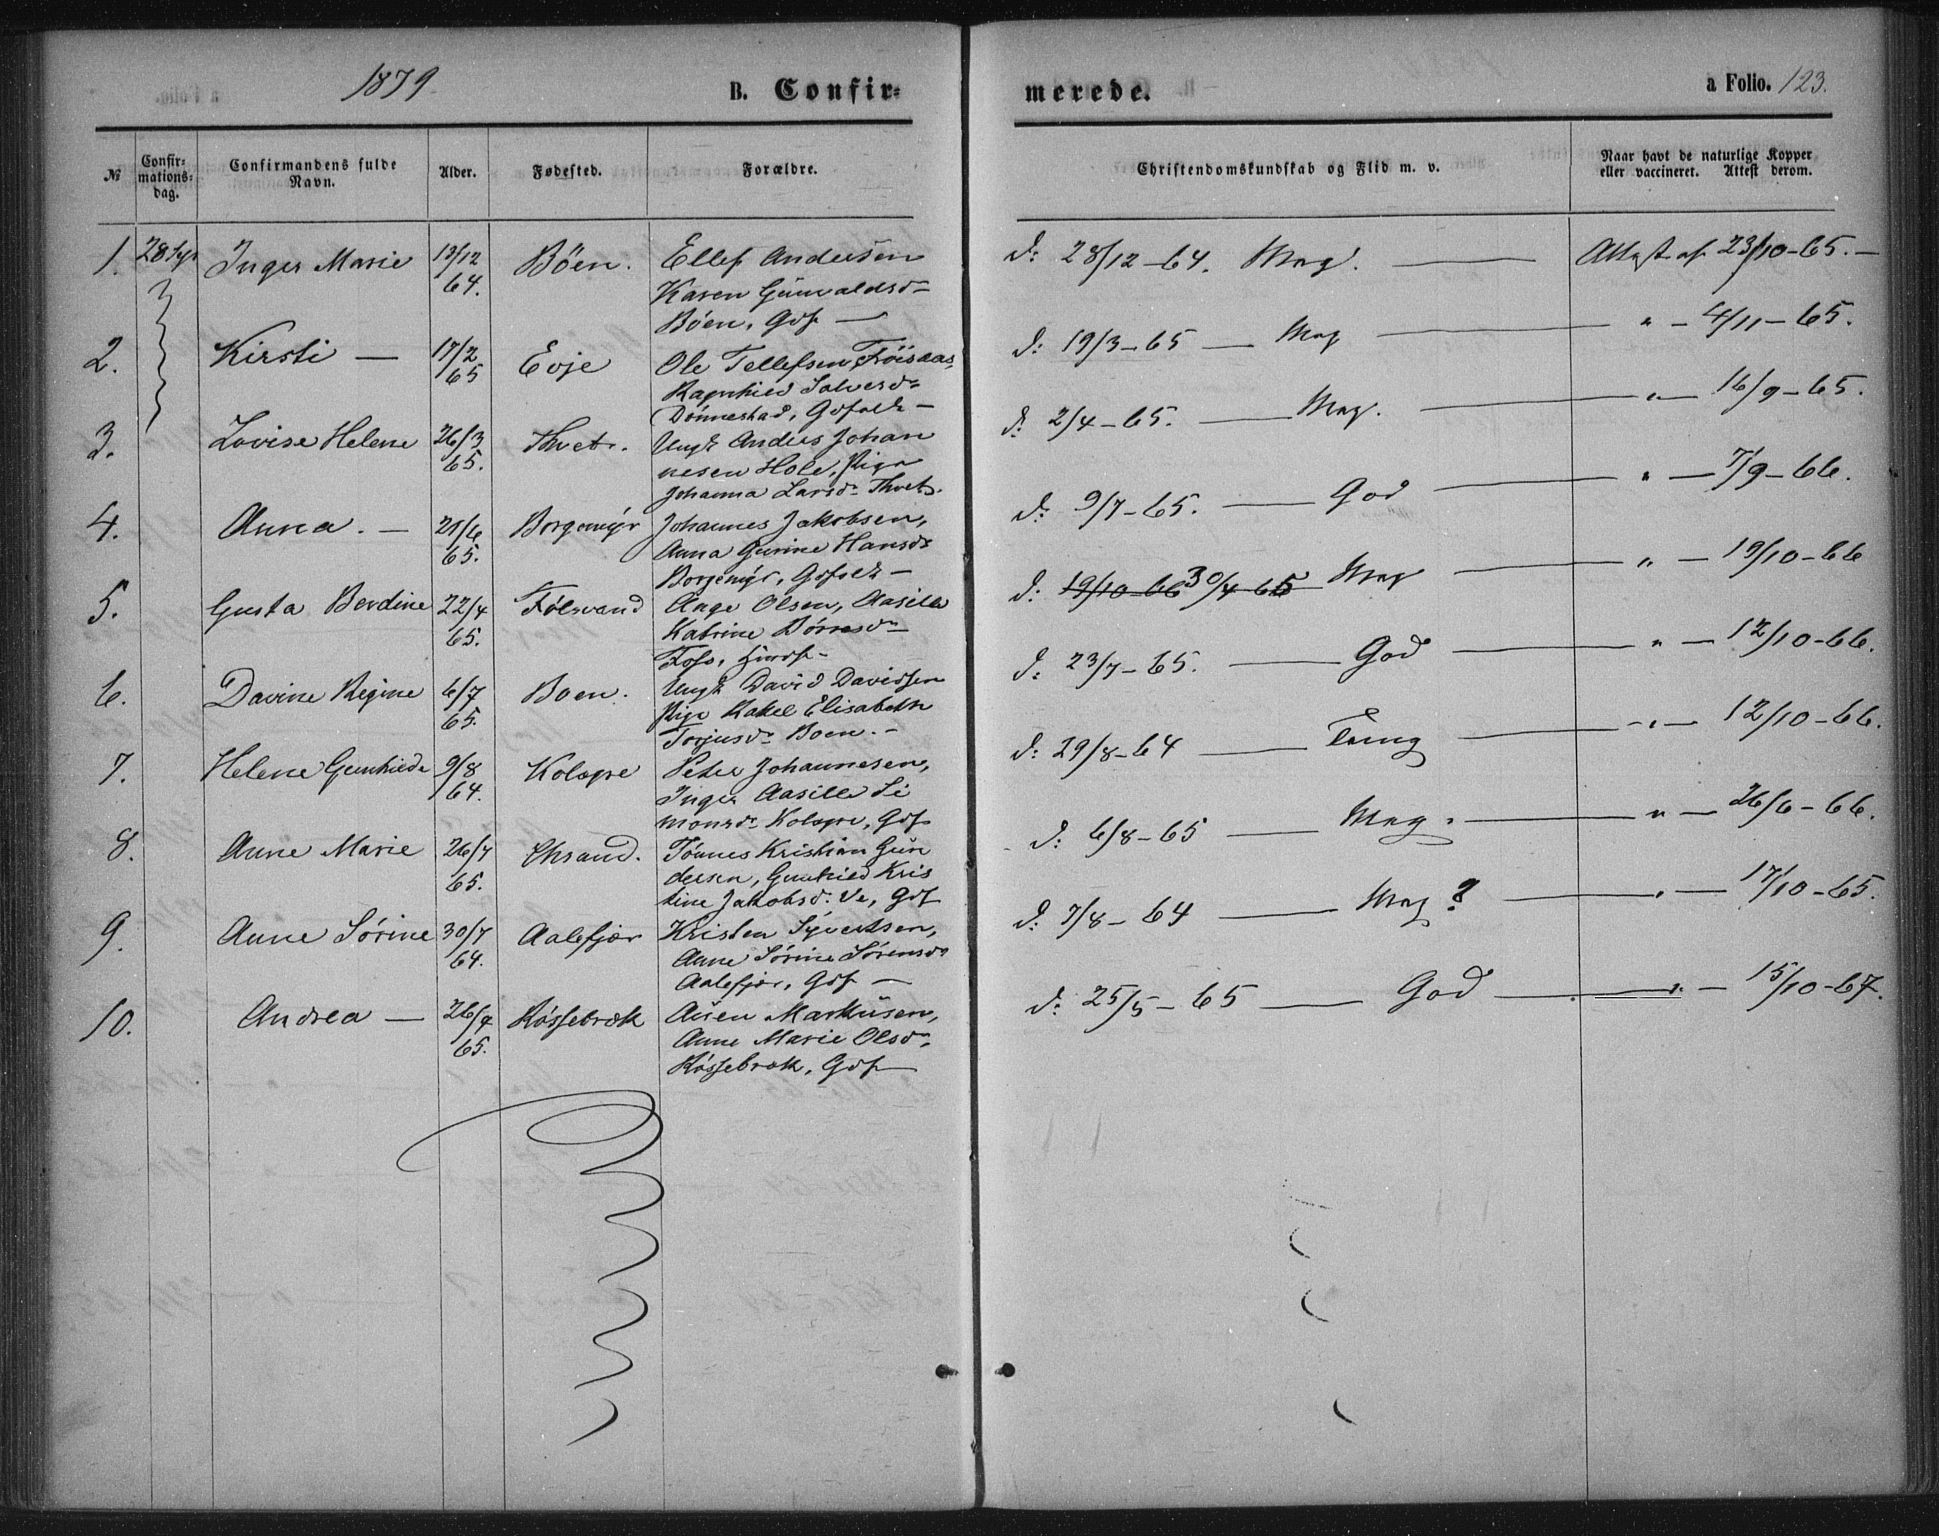 1879
B. Confir-
merede.
a Folio. 123.
№
Confir-
mations-
dag.
Confirmandens fulde
Navn.
Alder.
Fødested.
Forældre.
Christendomskundskab og Flid m. v.
Naar havt de naturlige Kopper
eller vaccineret. Attest derom.
1. 28 Inger Marie 13/12 Böen. Ellef Andersen
64. Karen
Böen, Gdf —
d: 28/12-64. Mag. — Attest af 23/10-65. —
2. Kirsti — 17/2 Evje Ole Tellefsen Fröisaas,
65 Ragnhild
Dønnestad, Gdfolk —
d: 19/3-65 — Mag — " — 4/11-65.
3. Lovise Helene 26/3 Thveit. Ungk Anders Johan
65. nesen Hole, Pige
Johanna Larsd. Thveit.
d: 2/4-65. — Mag. — " — 16/9-65.
4. Anna. — 21/6 Borgemyr Johannes Jakobsen,
65. Anna Gurine Hansd.
Borgemyr, Gdfolk —
d: 9/7-65. — God — " — 7/9-66.
5. Gusta Berdine 22/4 Følsvand Aage Olsen, Aasille
65. Katrine
Foss,
d: 19/10-66 30/4 65 Mag — " — 19/10-66
6. Davine Regine 6/7 Boen. Ungk David Davidsen
65. Pige Rakel Elisabeth
Torjusd. Boen. -
d: 23/7-65. — God — " — 12/10-66.
7. Helene Gunhilde 9/8 Kolsyre Peder Johannesen,
64. Inger Aasille Si
monsd. Kolsyre, Gdf
d: 29/8-64 — Temg — " — 12/10-66.
8. Anne Marie 26/7 Chrsand. Tönnes Kristian Gun
65. dersen, Gunhild Kris
tine Jakobsd. Ve, Gdf
d: 6/8-65 — Mag. — " — 26/6-66.
9. Anne Sørine 30/7 Aalefjær Kristen Syvertsen,
64. Anne Sørine Sørensd.
Aalefjær, Gdf —
d: 7/8-64 — Mag? — " — 17/10-65.
10. Andrea — 26/4 Røssebræk Asien Markusen,
65. Anne Marie Olsd.
Røssebræk, Gdf —
d: 25/5-65 — God — " — 15/10-67.